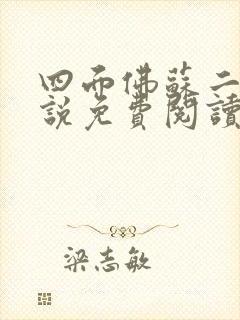 四面佛蘇二
說免費閱讀
梁志敏